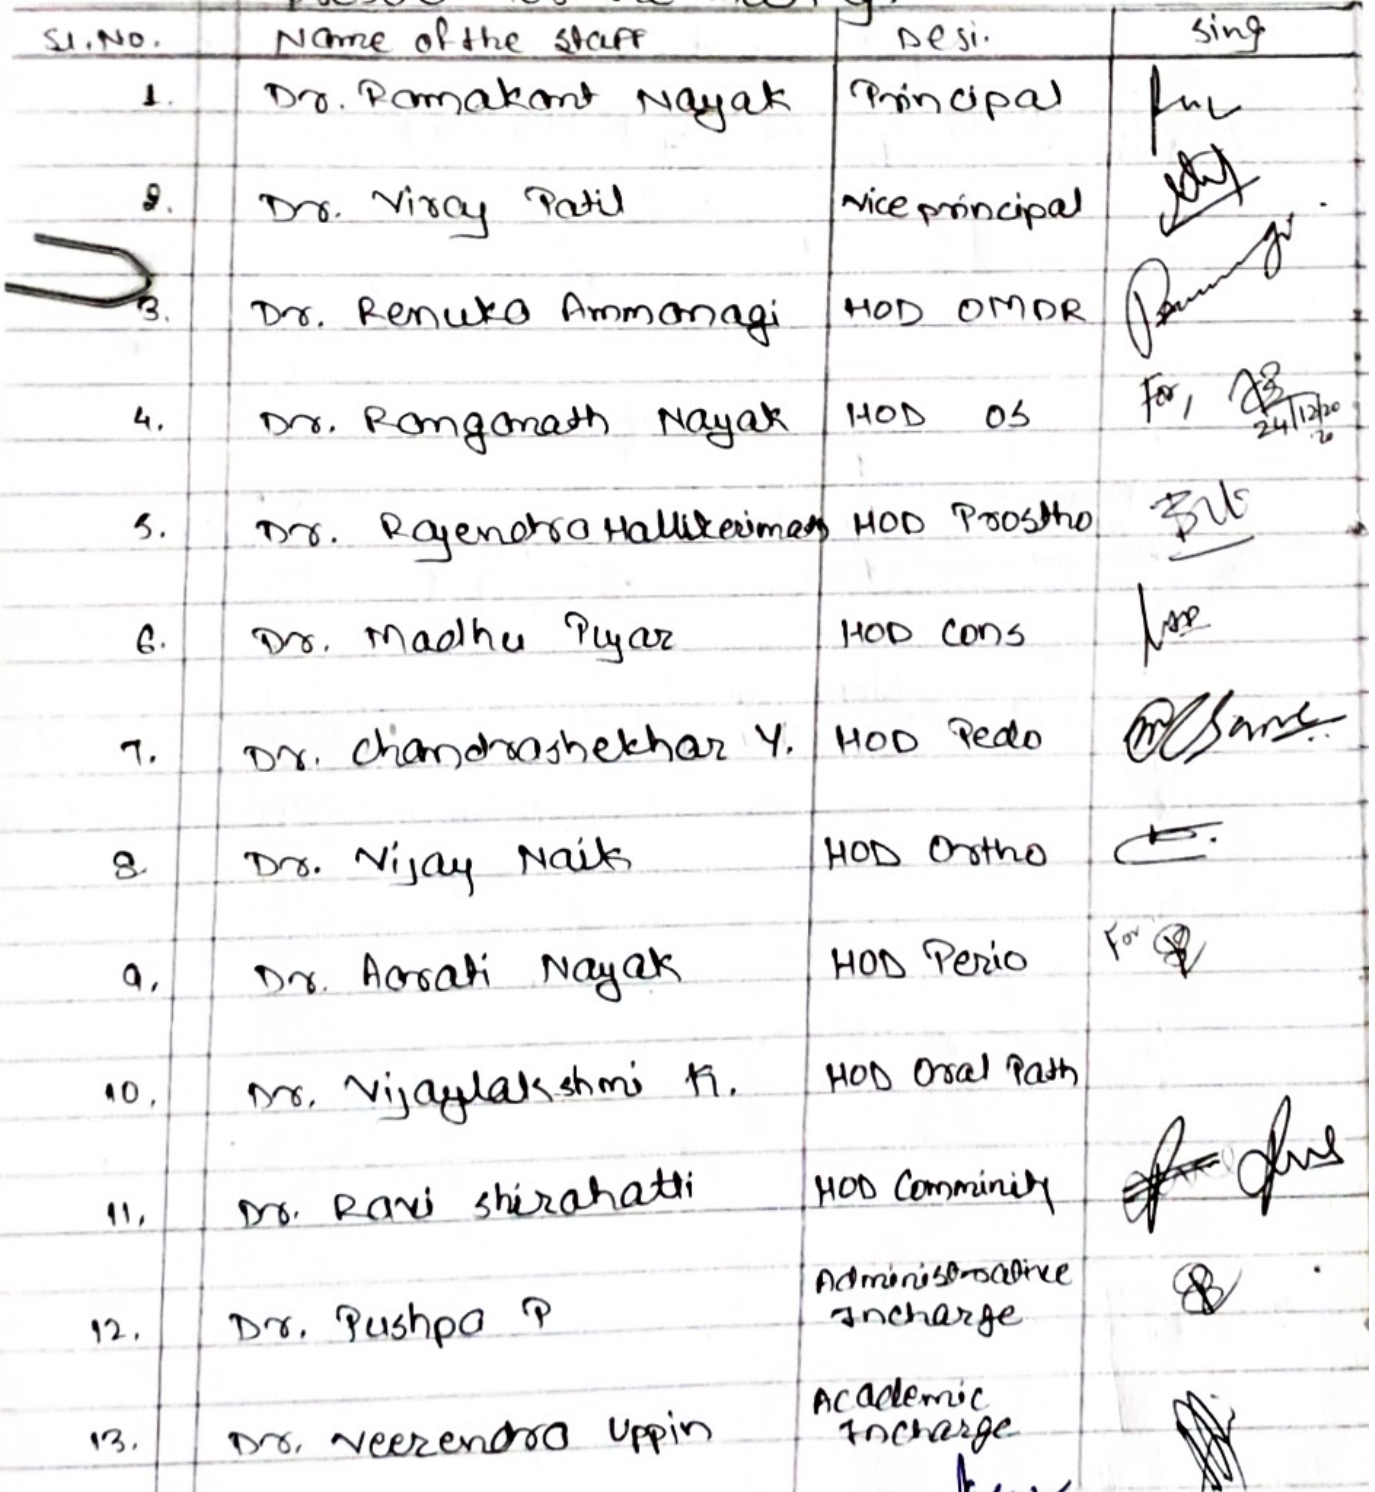 Sl.No. Name of the staff Desi. Sing
1. Dr. Ramakant Nayak Principal
2. Dr. Viray Patil Vice principal
3. Dr. Renuka Ammanagi HOD OMDR
4. Dr. Ranganath Nayak HOD OS For, 24/12/20
20
5. Dr. Rajendra Hallikerimath HOD Prostho
6. Dr. Madhu Pujar HOD Cons
7. Dr. Chandrashekhar Y. HOD Pedo
8 Dr. Vijay Naik HOD Ortho
9. Dr. Aarati Nayak HOD Perio For
10. Dr. Vijaylakshmi K. HOD Oral Path
11. Dr. Ravi Shirahatti HOD Comminity
12. Dr. Pushpa P Administrative
Incharge
13. Dr. Veerendra Uppin Academic
Incharge